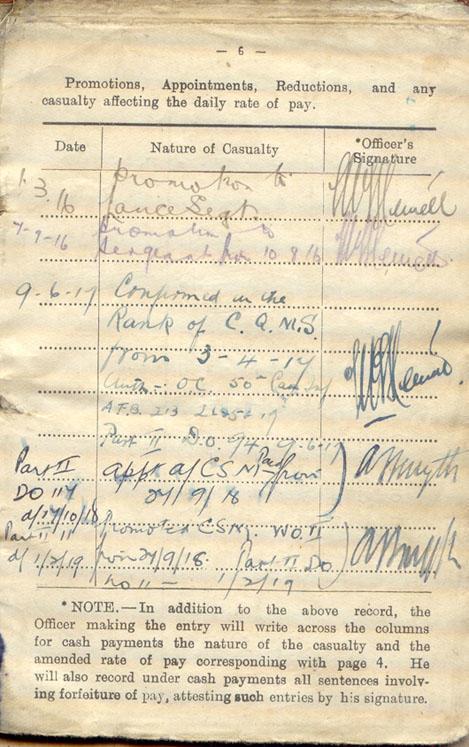 — 6 —
Promotions, Appointments, Reductions, and any
casualty affecting the daily rate of pay.
Date Nature of Casualty *Officer's Signature
1.3.16 promotion to
Lance Sergt.
7-9-16 promotion to
Sergeant from 10 8 16
9-6-17 Confirmed in the
Rank of C.Q.M.S.
from 3-4-17
Auth - O.C. 50
A.F.B. 213
Part II D.O. 94
Part II appt a/CSM Paid from
DO 114 27/9/18
d/17/10/18 Promoted CSM. WO.II
Part II 11 from 27/9/18. Part II DO
d/ 1/2/19 no 11 - 1/2/19
* NOTE.—In addition to the above record, the
Officer making the entry will write across the columns
for cash payments the nature of the casualty and the
amended rate of pay corresponding with page 4. He
will also record under cash payments all sentences involv-
ing forfeiture of pay, attesting such entries by his signature.